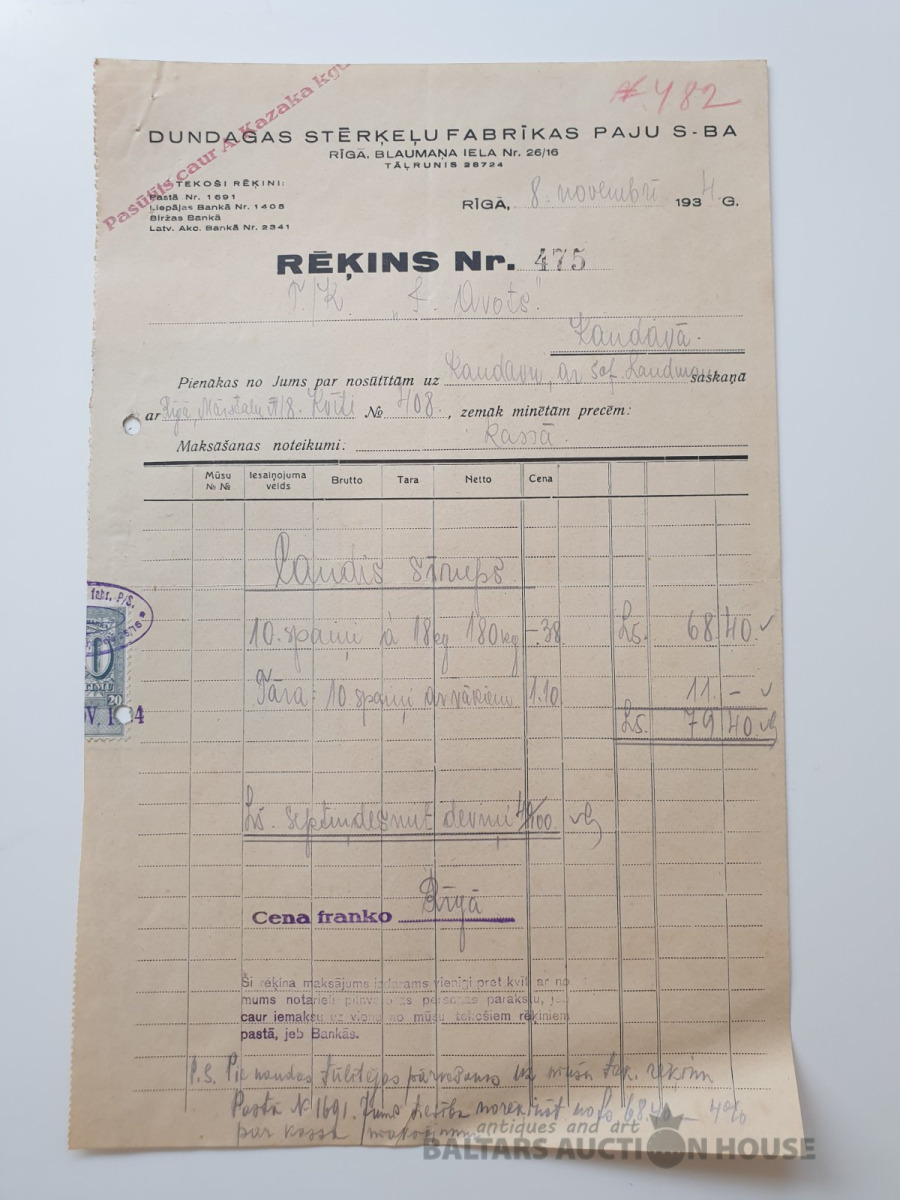 Pasūtīts caur A. Kazaka kgu
№ 482
DUNDAGAS STĒRĶEĻU FABRĪKAS PAJU S-BA
RĪGĀ, BLAUMAŅA IELA Nr. 26/16
TĀĻRUNIS 28724
TEKOŠI RĒĶINI:
Pastā Nr. 1691
Liepājas Bankā Nr. 1405
Biržas Bankā
Latv. Akc. Bankā Nr. 2341
RĪGĀ, 8. novembrī 1934. G.
RĒĶINS Nr. 475
T./K. "F. Avots"
Kandavā.
Pienākas no Jums par nosūtītām uz Kandavu, ar šof. Landman saskaņā
ar Rīgā, Kvīti № 408., zemāk minētām precēm:
Maksāšanas noteikumi: kassā.
Mūsu №№ Iesaiņojuma veids Brutto Tara Netto Cena
Candis sīrups
10. spaiņi à 18kg 180kg -.38 Ls. 68 40.
Tāra: 10 spaiņi ar vākiem 1.10 11. -
Ls. 79 40.
Ls. septiņdesmit deviņi 40/100
Cena franko Rīgā
Ši rēķina maksājums izdarāms vienīgi pret kvīti ar no
mums notarieli pilnvarotas personas parakstu, jeb
caur iemaksu uz vienu no mūsu tekošiem rēķiniem
pastā, jeb Bankās.
P.S. Pie naudas tūlītējas pārvešanas uz mūsu tek. rēķinu
Pastā № 1691. Jums tiesība norēķināt no Ls 68.40 4%
par kassa
fabr. P/S.
20
antiques and art
BALTARS AUCTION HOUSE